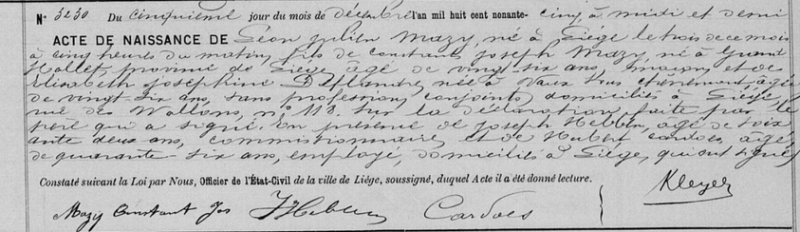 N° 3230 Du cinquième jour du mois de décembre l'an mil huit cent nonante-cinq à midi et demi
ACTE DE NAISSANCE DE Léon Julien Mazy, né à Liége le trois de ce mois
à cinq heures du matin, fils de Constant Joseph Mazy, né à Grand
Hallet, province de Liége, âgé de vingt six ans, et de
Elisabeth Joséphine Deflandre, née à Vaux sous Chèvremont, âgée
de vingt-six ans, sans profession, conjoints, domiciliés à Liége,
rue des Wallons, n° 118. Sur la déclaration faite par le
père qui a signé. En présence de Joseph Hebbin, âgé de soix-
ante deux ans, commissionnaire et de Hubert Cardols, âgé
de quarante six ans, employé, domiciliés à Liége, qui ont signé
Constaté suivant la Loi par Nous, Officier de l'État-Civil de la ville de Liége, soussigné, duquel Acte il a été donné lecture.
Mazy Constant Jos J Hebbin Cardols Kleyer